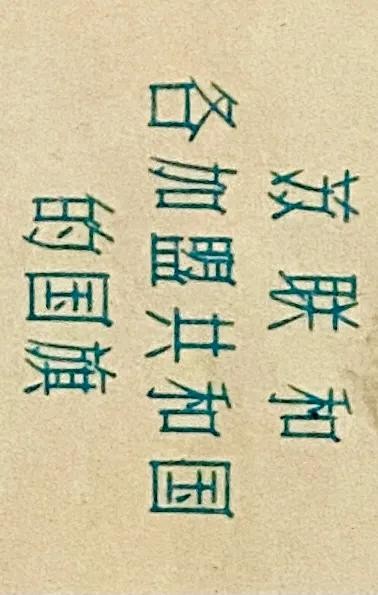 苏联和
各加盟共和国
的国旗